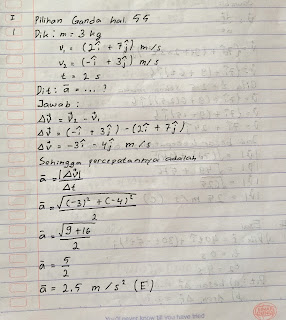 I Pilihan Ganda hal. 55
1 Dik : m = 3 kg
v₁ = (2î + 7ĵ) m/s
v₂ = (-î + 3ĵ) m/s
t = 2 s
Dit : ā = ... ?
Jawab :
Δv⃗ = v⃗₂ - v⃗₁
Δv⃗ = (-î + 3ĵ) - (2î + 7ĵ)
Δv⃗ = -3î - 4ĵ m/s
Sehingga percepatannya adalah
ā = |Δv⃗| / Δt
ā = √((-3)² + (-4)²) / 2
ā = √(9 + 16) / 2
ā = 5 / 2
ā = 2,5 m/s² (E)